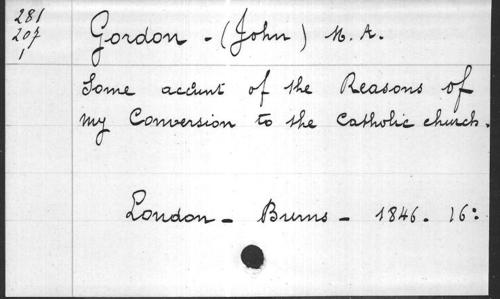 281
207
1
Gordon - (John) M. A.
Some account of the Reasons of
my Conversion to the Catholic church.
London - Burns - 1846. 16: